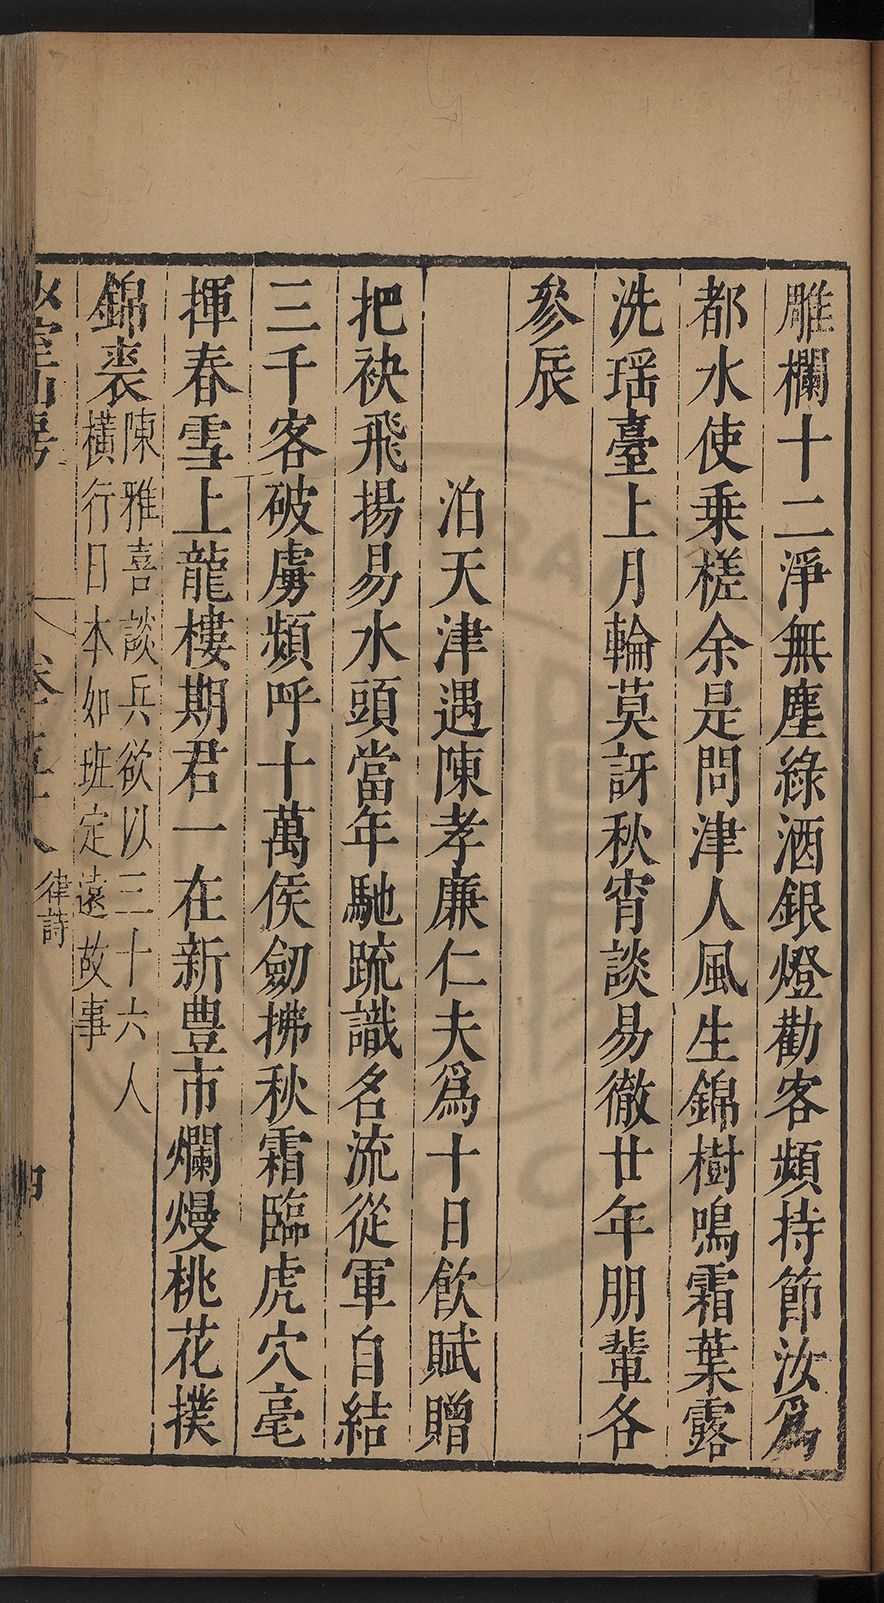 雕欄十二淨無塵綠酒銀燈勸客頻持節汝爲
都水使乗槎余是問津人風生錦樹鳴霜葉露
洗瑶臺上月輪莫訝秋宵談易徹廿年朋輩各
參辰
泊天津遇陳孝廉仁夫爲十日飲賦贈
把袂飛揚易水頭當年馳䟽識名流從軍自結
三千客破虜頻呼十萬侯劒拂秋霜臨虎穴毫
揮春雪上龍樓期君一在新豊市爛熳桃花撲
錦裘
陳雅喜談兵欲以三十六人
橫行日本如班定遠故事
律詩